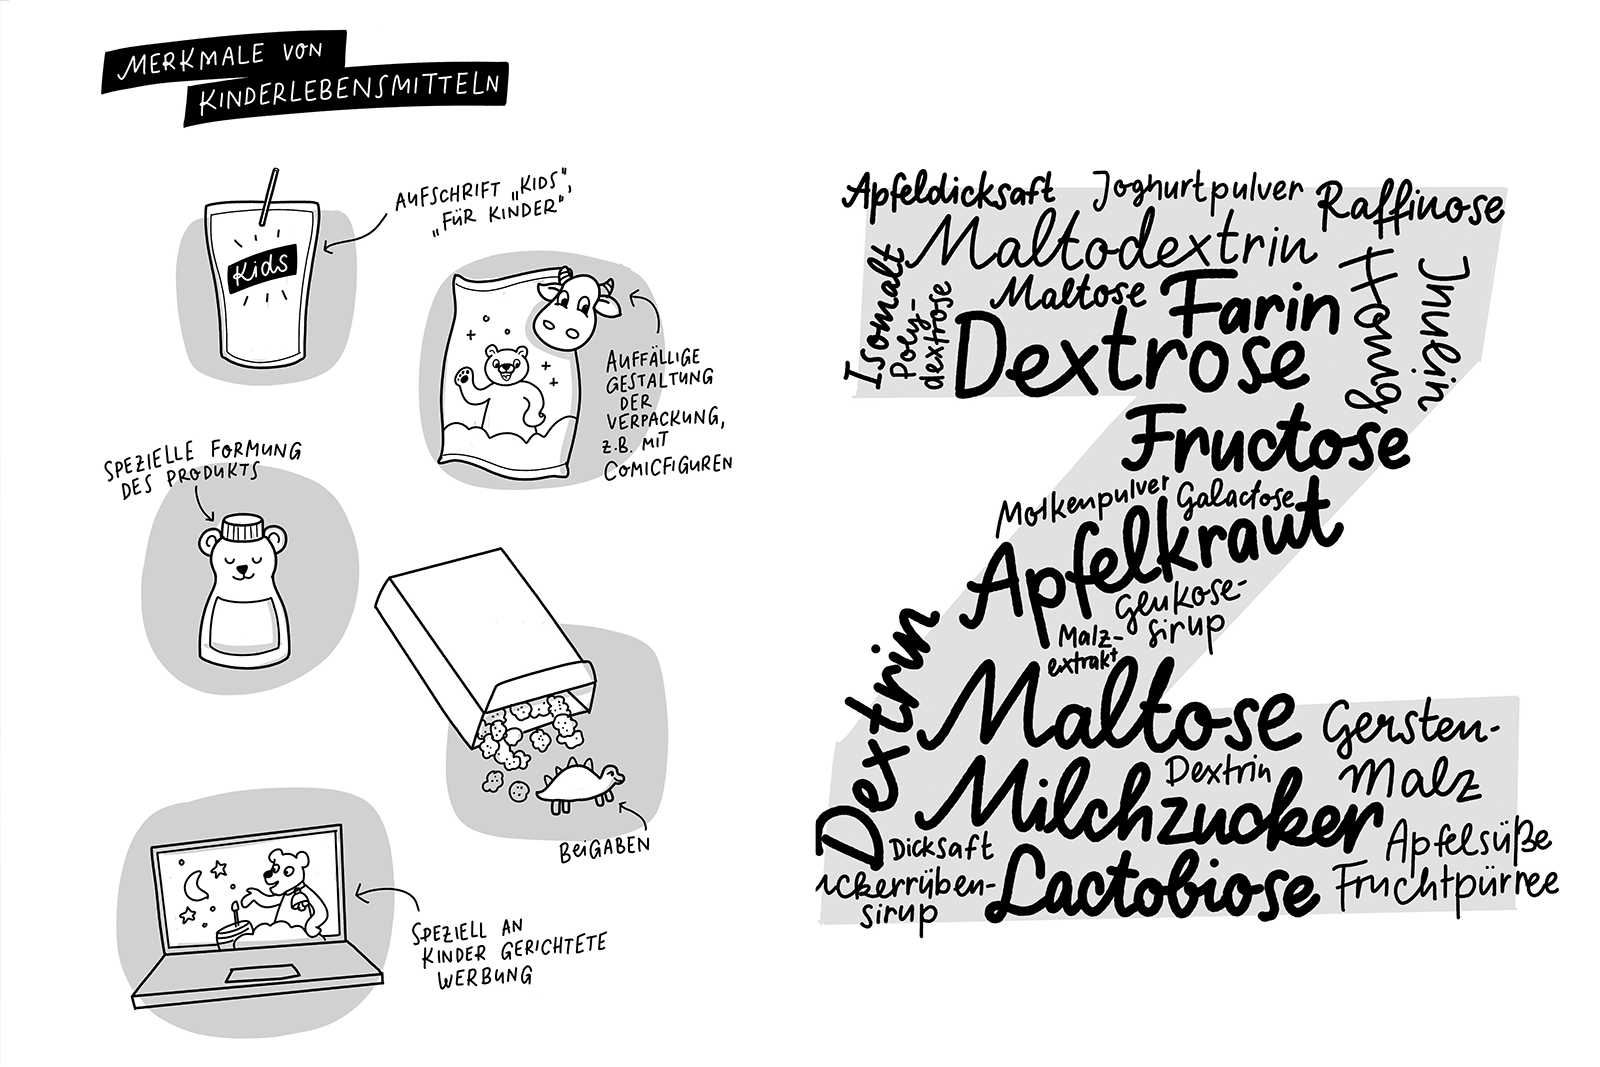 MERKMALE VON
KINDERLEBENSMITTELN
Kids
AUFSCHRIFT „KIDS“,
„FÜR KINDER“
AUFFÄLLIGE
GESTALTUNG
DER
VERPACKUNG,
Z.B. MIT
COMICFIGUREN
SPEZIELLE FORMUNG
DES PRODUKTS
BEIGABEN
SPEZIELL AN
KINDER GERICHTETE
WERBUNG
Apfeldicksaft
Joghurtpulver
Raffinose
Maltodextrin
Isomalt
Poly-
dextrose
Maltose
Farin
Honig
Inulin
Dextrose
Fructose
Molkenpulver
Galactose
Apfelkraut
Glukose-
sirup
Malz-
extrakt
Dextrin
Maltose
Gersten-
Malz
Dextrin
Milchzucker
Dicksaft
Apfelsüße
ckerrüben-
sirup
Lactobiose
Fruchtpürree